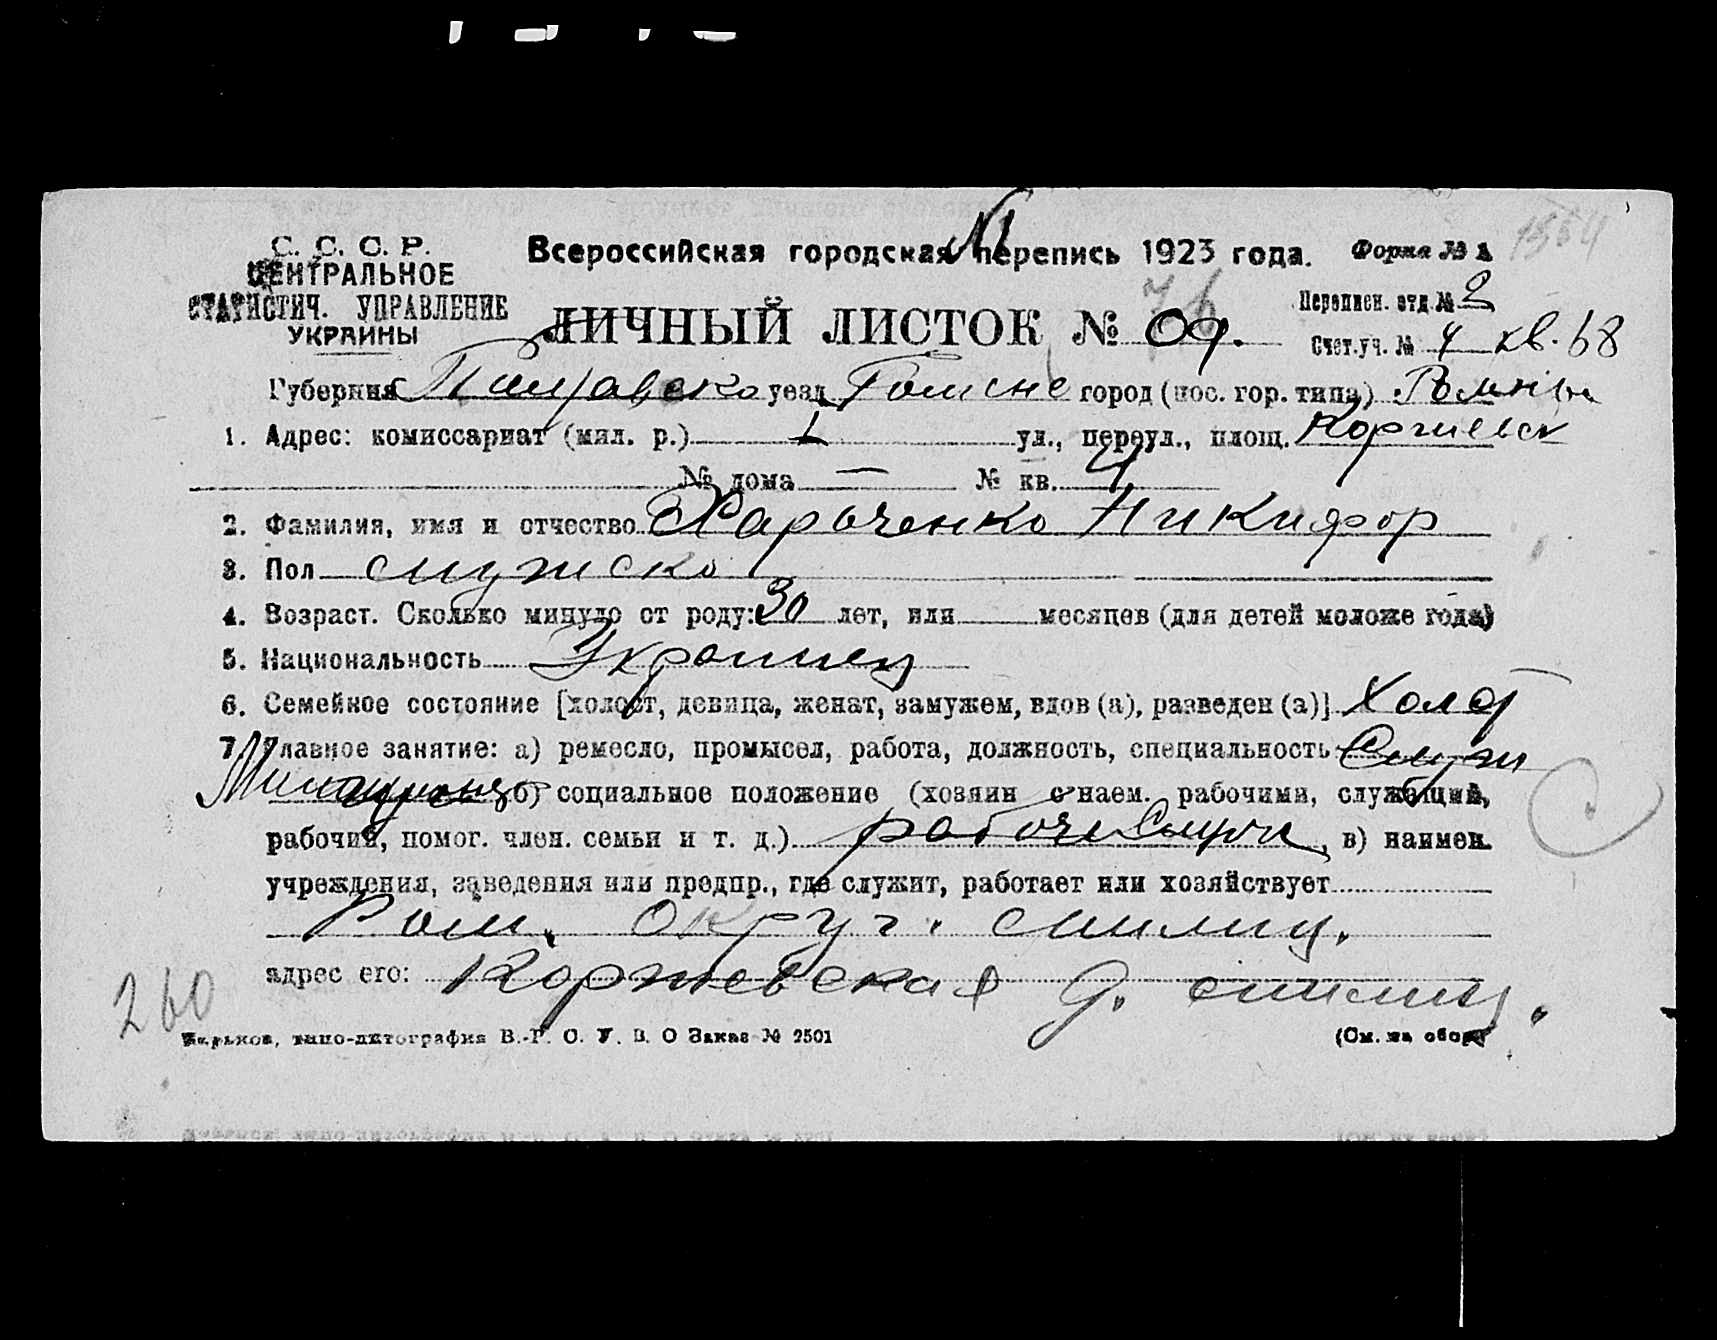 С. С. С. Р.
ЦЕНТРАЛЬНОЕ
СТАТИСТИЧ. УПРАВЛЕНИЕ
УКРАИНЫ
Всероссийская городская перепись 1923 года. Форма № А
1554
ЛИЧНЫЙ ЛИСТОК №
76
Переписн. отд. № 2
Счет. уч. № 4 кв. 68
Губерния уезд город (пос. гор. типа) Ромны
1. Адрес: комиссариат (мил. р.) I ул., переул., площ. Коржевск
№ дома — № кв. 4
2. Фамилия, имя и отчество Харченко Никифор
3. Пол мужско
4. Возраст. Сколько минуло от роду: 30 лет, или месяцев (для детей моложе года)
5. Национальность Украинец
6. Семейное состояние [холост, девица, женат, замужем, вдов (а), разведен (а)] Холост
7. Главное занятие: а) ремесло, промысел, работа, должность, специальность Служ
б) социальное положение (хозяин с наем. рабочими, служащий,
рабочий, помог. член. семьи и т. д.) в) наимен.
учреждения, заведения или предпр., где служит, работает или хозяйствует
Ром. Округ. милиц.
адрес его: Коржевская д. милиц.
260
Харьков, типо-литография В.-Р. С. У. В. О Заказ № 2501
(См. на обор.